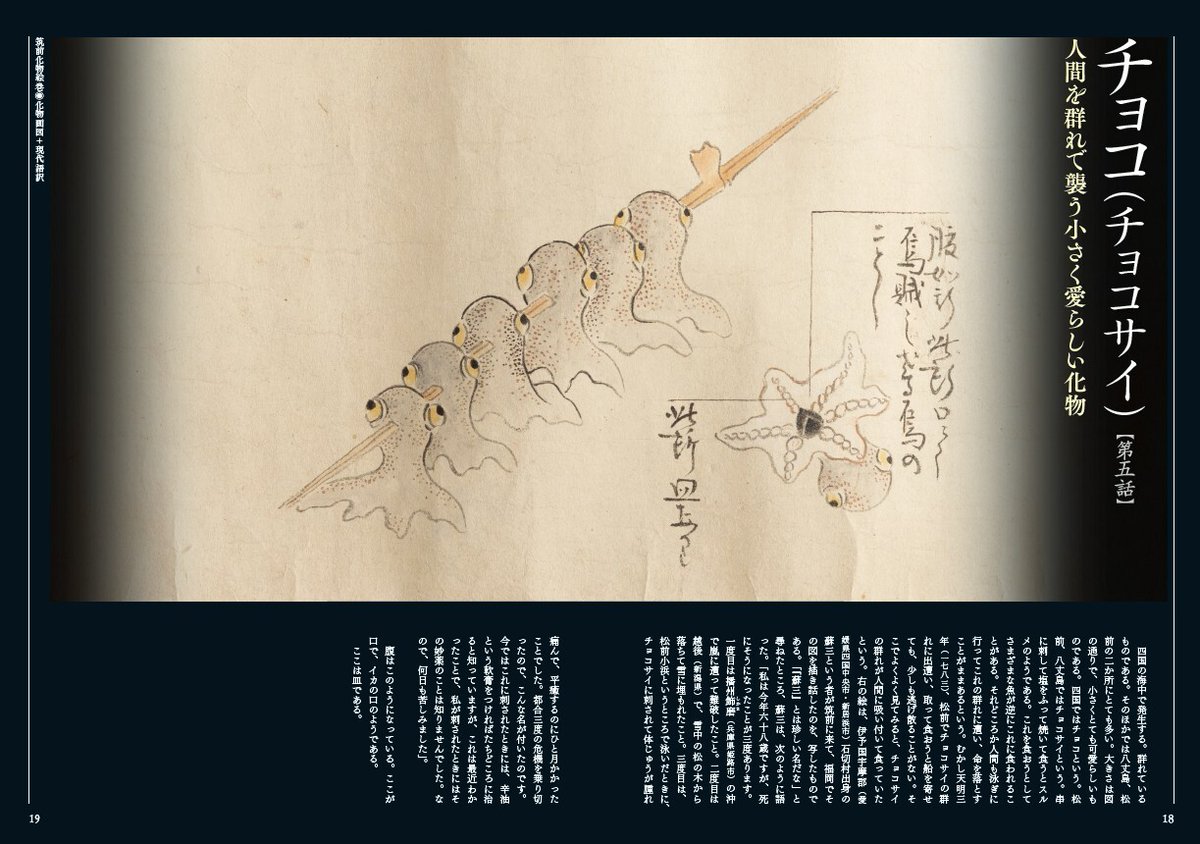 チョコ（チョコサイ）【第五話】
人間を群れで襲う小さく愛らしい化物
腹如斯 此所口ニ〱
烏賊しゝ烏の
ことし
此所皿
四国の海中で発生する。群れている
ものである。そのほかでは八丈島、松
前の二か所にとても多い。大きさは図
の通りで、小さくとても可愛らしいも
のである。四国ではチョコという。松
前、八丈島ではチョコサイという。串
に刺して塩をふって焼いて食うとスル
メのようである。これを食おうとして
さまざまな魚が逆にこれに食われるこ
とがある。それどころか人間も泳ぎに
行ってこれの群れに遭い、命を落とす
ことがままあるという。むかし天明三
年（一七八三）、松前でチョコサイの群
れに出遭い、取って食おうと船を寄せ
ても、少しも逃げ散ることがない。そ
こでよくよく見てみると、チョコサイ
の群れが人間に吸い付いて食っていた
という。右の絵は、伊予国宇摩郡（愛
媛県四国中央市・新居浜市）石切村出身の
蘇三という者が筑前に来て、福岡でそ
の図を描き話したのを、写したもので
ある。「「蘇三」とは珍しい名だな」と
尋ねたところ、蘇三は、次のように語
った。「私は今年六十八歳ですが、死
にそうになったことが三度あります。
一度目は播州飾磨（兵庫県姫路市）の沖
で嵐に遭って難破したこと。二度目は
越後（新潟県）で、雪中の松の木から
落ちて雪に埋もれたこと。三度目は、
松前小浜というところで泳いだときに、
チョコサイに刺されて体じゅうが腫れ
痛んで、平癒するのにひと月かかった
ことでした。都合三度の危機を乗り切
ったので、こんな名が付いたのです。
今ではこれに刺されたときには、辛油
という軟膏をつければたちどころに治
ると知っていますが、これは最近わか
ったことで、私が刺されたときにはそ
の妙薬のことは知りませんでした。な
ので、何日も苦しみました」。
腹はこのようになっている。ここが
口で、イカの口のようである。
ここは皿である。
筑前化物絵巻◉化物画図＋現代語訳
18
19